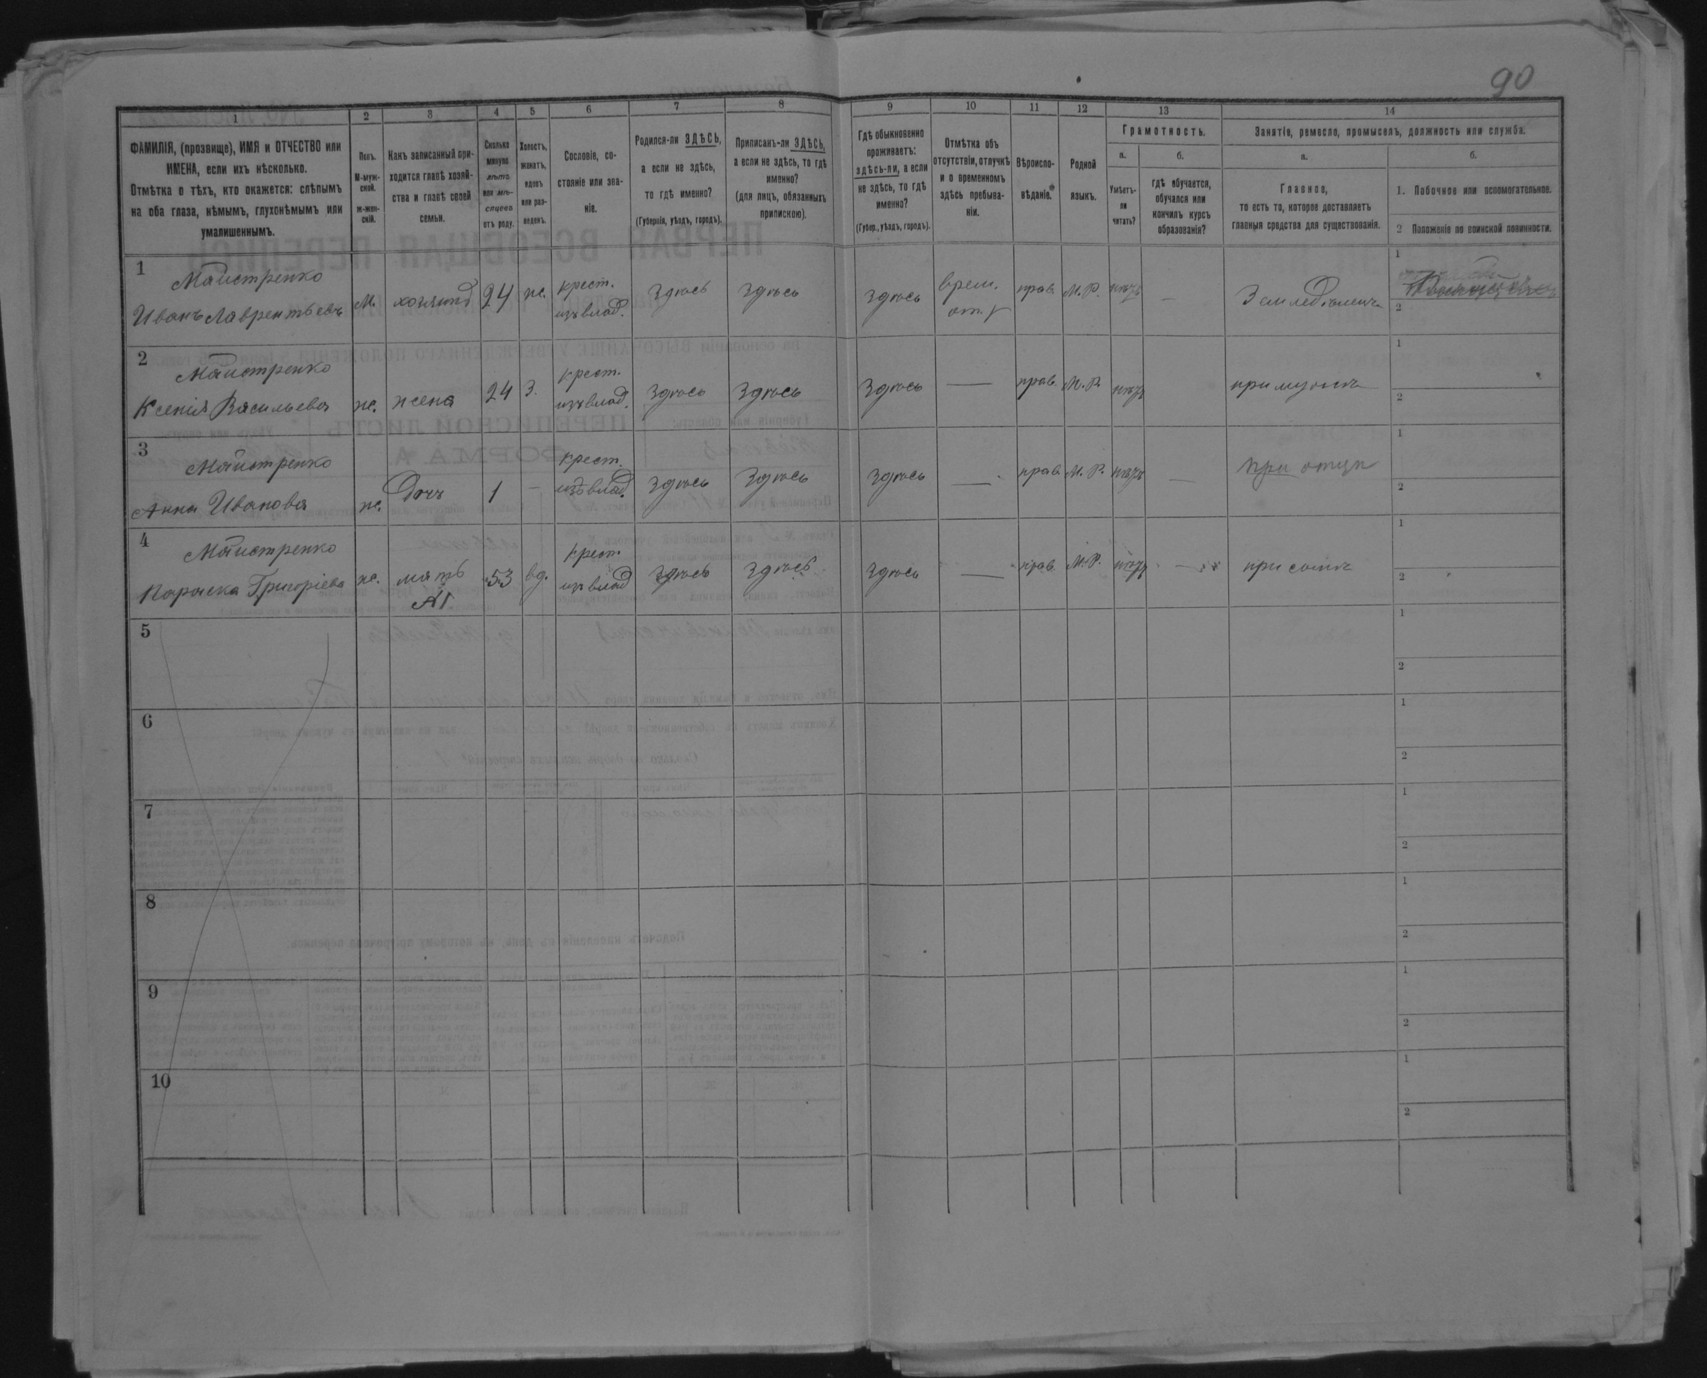 90
1 2 3 4 5 6 7 8 9 10 11 12 13 14
ФАМИЛІЯ, (прозвище), ИМЯ и ОТЧЕСТВО или
ИМЕНА, если ихъ нѣсколько.
Отмѣтка о тѣхъ, кто окажется: слѣпымъ
на оба глаза, нѣмымъ, глухонѣмымъ или
умалишеннымъ.
Полъ.
М-муж-
ской.
ж-жен-
скій.
Какъ записанный при-
ходится главѣ хозяй-
ства и главѣ своей
семьи.
Сколько
минуло
лѣтъ
или мѣ-
сяцевъ
отъ роду.
Холостъ,
женатъ,
вдовъ
или раз-
веденъ.
Сословіе, со-
стояніе или зва-
ніе.
Родился-ли ЗДѢСЬ,
а если не здѣсь,
то гдѣ именно?
(Губернія, уѣздъ, городъ).
Приписанъ-ли ЗДѢСЬ,
а если не здѣсь, то гдѣ
именно?
(для лицъ, обязанныхъ
припискою).
Гдѣ обыкновенно
проживаетъ:
здѣсь-ли, а если
не здѣсь, то гдѣ
именно?
(Губер., уѣздъ, городъ).
Отмѣтка объ
отсутствіи, отлучкѣ
и о временномъ
здѣсь пребыва-
ніи.
Вѣроиспо-
вѣданіе.
Родной
языкъ.
Грамотность.
а. б.
Умѣетъ-
ли
читать?
гдѣ обучается,
обучался или
кончилъ курсъ
образованія?
Занятіе, ремесло, промыселъ, должность или служба.
а. б.
Главное,
то есть то, которое доставляетъ
главныя средства для существованія.
1. Побочное или вспомогательное.
2 Положеніе по воинской повинности.
1 Майстренко
Иванъ Лаврентьевъ М. хозяинъ 24 ж. крест. изъ влад. Здѣсь Здѣсь Здѣсь врем. отл. прав. М.Р. нѣтъ — Земледѣлецъ 1 2
2 Майстренко
Ксенія Васильева ж. жена 24 З. крест. изъ влад. Здѣсь Здѣсь Здѣсь — прав. М.Р. нѣтъ при мужѣ 1 2
3 Майстренко
Анна Иванова ж. дочь 1 – крест. изъ влад. Здѣсь Здѣсь Здѣсь — прав. М.Р. нѣтъ — при отцѣ 1 2
4 Майстренко
Параска Григоріева ж. мать 53 вд. крест. изъ влад Здѣсь Здѣсь Здѣсь — прав. М.Р. нѣтъ — при сынѣ 1 2
5 1 2
6 1 2
7 1 2
8 1 2
9 1 2
10 1 2